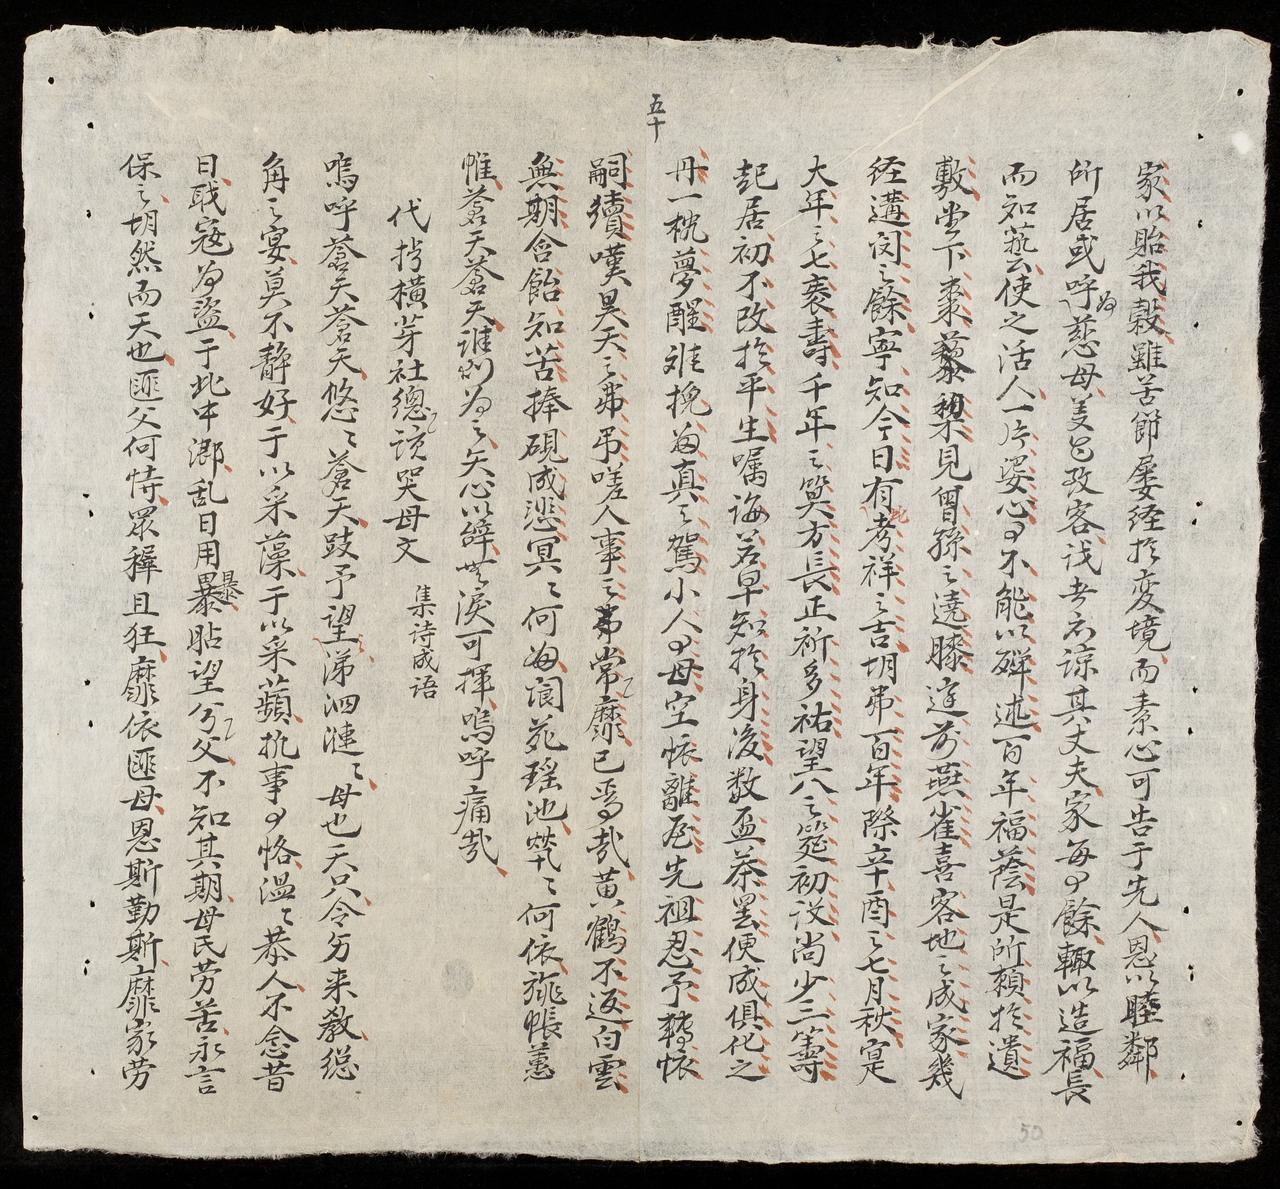 五十
家以貽我穀雖苦節屡経於変境而素心可告于先人恩以睦鄰
所居或呼為慈母羙 孜客浅者衣諒其丈夫家每 餘輙以造福長
而知藝使之活人一片婆心 不能以殫述百年福蔭是所頼於遺
敷堂下棗藜梨栗見曾孫之遶膝庭前燕雀喜客地之成家幾
経遘閔之餘寧知今日有此考祥之吉胡弗百年際辛酉之七月秋寔
大年之七袠壽千年之筭方長正祈多祐望八之筵初設尚少三籌
起居初不改於平生嘱誨若早知於身後数盃茶罢便成俱化之
丹一枕夢醒难挽 真之駕小人 母空悵離居先祖忍予轉悵
嗣續嘆昊天之弗弔嗟人事之弗常靡已焉哉黄鶴不返白雲
無期含飴知苦捧硯成悲冥〻何 閬苑瑶池煢〻何依旐帳蕙
帷蒼天蒼天誰則為之矢心以辞無淚可揮嗚呼痛哉
代 橫芽社總 哭母文 集诗成语
嗚呼蒼天蒼天悠〻蒼天跂予望涕泗漣〻母也天只令匀来教総
角之宴莫不静好于以采藻于以采蘋执事 恪温〻恭人不念昔
日戢寇为盗于此中鄉乱日用暴 望兮父不知其期母氏劳苦永言
保之胡然而天也匪父何恃眾穉且狂靡依匪母恩斯勤斯靡家劳
50